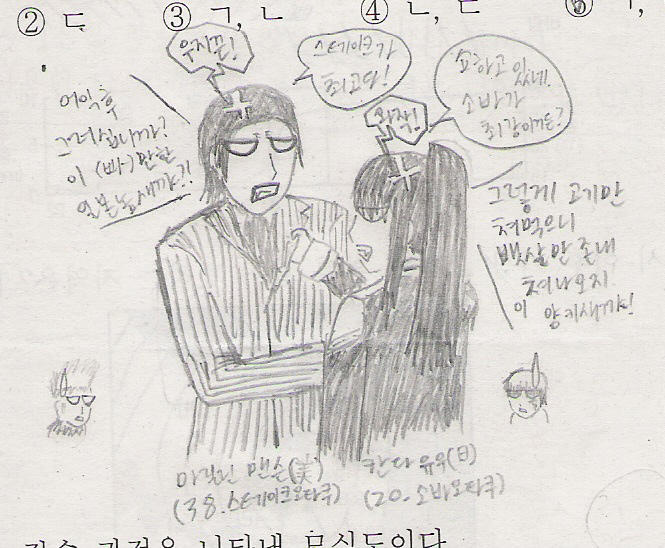 ② ㄷ ③ ㄱ, ㄴ ④ ㄴ, ㄷ ⑤ ㄱ,
우지끈!
스테이크가
최고다!
소바가
최강이거든?
어익후
그러십니까?
이 (빠-)만한
일본놈새끼가?!
그렇게 고기만
쳐먹으니
뱃살만 존내
쳐나오지
이 양키새끼야!
마릴린 맨슨(美)
(38.스테이크오타쿠)
칸다 유우(日)
(20.소바오타쿠)